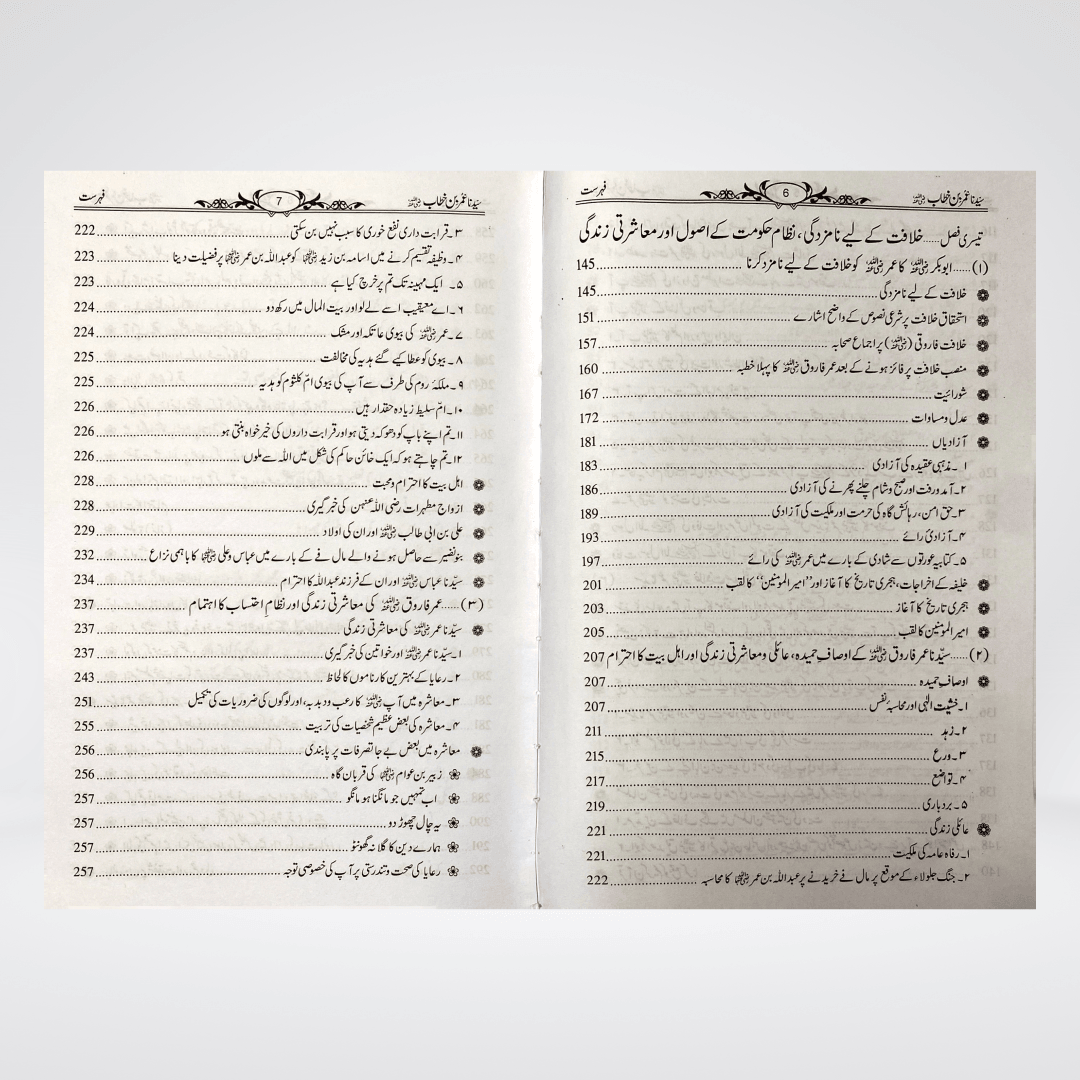 سیّدنا عمر بن خطاب رضی اللہ عنہ 6 فہرست
تیسری فصل...... خلافت کے لیے نامزدگی، نظام حکومت کے اصول اور معاشرتی زندگی
(۱)...... ابوبکر رضی اللہ عنہ کا عمر رضی اللہ عنہ کو خلافت کے لیے نامزد کرنا 145
خلافت کے لیے نامزدگی 145
استحقاق خلافت پر شرعی نصوص کے واضح اشارے 151
خلافت فاروقی (رضی اللہ عنہ) پر اجماع صحابہ 157
منصب خلافت پر فائز ہونے کے بعد عمر فاروق رضی اللہ عنہ کا پہلا خطبہ 160
شورائیت 167
عدل و مساوات 172
آزادیاں 181
۱۔ مذہبی عقیدہ کی آزادی 183
۲۔ آمد و رفت اور صبح و شام چلنے پھرنے کی آزادی 186
۳۔ حق امن، رہائش گاہ کی حرمت اور ملکیت کی آزادی 189
۴۔ آزادیٔ رائے 193
۵۔ کتابیہ عورتوں سے شادی کے بارے میں عمر رضی اللہ عنہ کی رائے 197
خلیفہ کے اخراجات، ہجری تاریخ کا آغاز اور ’’امیر المومنین‘‘ کا لقب 201
ہجری تاریخ کا آغاز 203
امیر المومنین کا لقب 205
(۲)...... سیّدنا عمر فاروق رضی اللہ عنہ کے اوصاف حمیدہ، عائلی و معاشرتی زندگی اور اہل بیت کا احترام 207
اوصاف حمیدہ 207
۱۔ خشیت الٰہی اور محاسبۂ نفس 207
۲۔ زہد 211
۳۔ ورع 215
۴۔ تواضع 217
۵۔ بردباری 219
عائلی زندگی 221
۱۔ رفاہ عامہ کی ملکیت 221
۲۔ جنگ جلولاء کے موقع پر مال فے خریدنے پر عبداللہ بن عمر رضی اللہ عنہما کا محاسبہ 222
سیّدنا عمر بن خطاب رضی اللہ عنہ 7 فہرست
۳۔ قرابت داری نفع خوری کا سبب نہیں بن سکتی 222
۴۔ وظیفہ تقسیم کرنے میں اسامہ بن زید رضی اللہ عنہما کو عبداللہ بن عمر رضی اللہ عنہما پر فضیلت دینا 223
۵۔ ایک مہینہ تک تم پر خرچ کیا ہے 223
۶۔ اے معیقیب اسے لے لو اور بیت المال میں رکھ دو 224
۷۔ عمر رضی اللہ عنہ کی بیوی عاتکہ اور مشک 224
۸۔ بیوی کو عطا کیے گئے ہدیہ کی مخالفت 225
۹۔ ملکۂ روم کی طرف سے آپ کی بیوی امّ کلثوم کو ہدیہ 225
۱۰۔ امّ سلیط زیادہ حقدار ہیں 226
۱۱۔ تم اپنے باپ کو دھوکہ دیتی ہو اور قرابت داروں کی خیر خواہ بنتی ہو 226
۱۲۔ تم چاہتے ہو کہ ایک خائن حاکم کی شکل میں اللہ سے ملوں 226
اہل بیت کا احترام و محبت 228
ازواج مطہرات رضی اللہ عنہن کی خبر گیری 228
علی بن ابی طالب رضی اللہ عنہ اور ان کی اولاد 229
بنو نضیر سے حاصل ہونے والے مال فے کے بارے میں عباس و علی رضی اللہ عنہما کا باہمی نزاع 232
سیّدنا عباس رضی اللہ عنہ اور ان کے فرزند عبداللہ کا احترام 234
(۳)...... عمر فاروق رضی اللہ عنہ کی معاشرتی زندگی اور نظامِ احتساب کا اہتمام 237
سیّدنا عمر رضی اللہ عنہ کی معاشرتی زندگی 237
۱۔ سیّدنا عمر رضی اللہ عنہ اور خواتین کی خبر گیری 237
۲۔ رعایا کے بہترین کارناموں کا لحاظ 243
۳۔ معاشرہ میں آپ رضی اللہ عنہ کا رعب و دبدبہ، اور لوگوں کی ضروریات کی تکمیل 251
۴۔ معاشرہ کی بعض عظیم شخصیات کی تربیت 255
معاشرہ میں بعض بے جا تصرفات پر پابندی 256
زبیر بن عوام رضی اللہ عنہ کی قربان گاہ 256
اب تمہیں جو مانگنا ہو مانگو 257
یہ چال چھوڑ دو 257
ہمارے دین کا گلا نہ گھونٹو 257
رعایا کی صحت و تندرستی پر آپ کی خصوصی توجہ 257